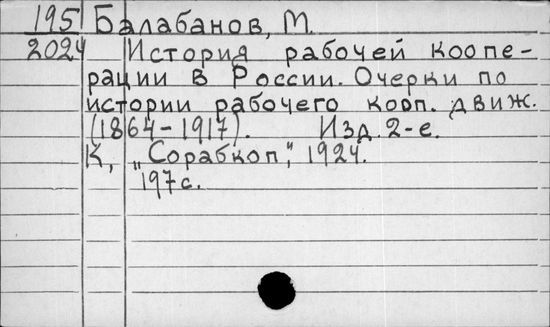 195 Балабанов, М.
2024 История рабочей коопе-
рации в России. Очерки по
истории рабочего кооп. движ.
(1864-1917). Изд. 2-е.
К, „Сорабкоп", 1924.
197с.